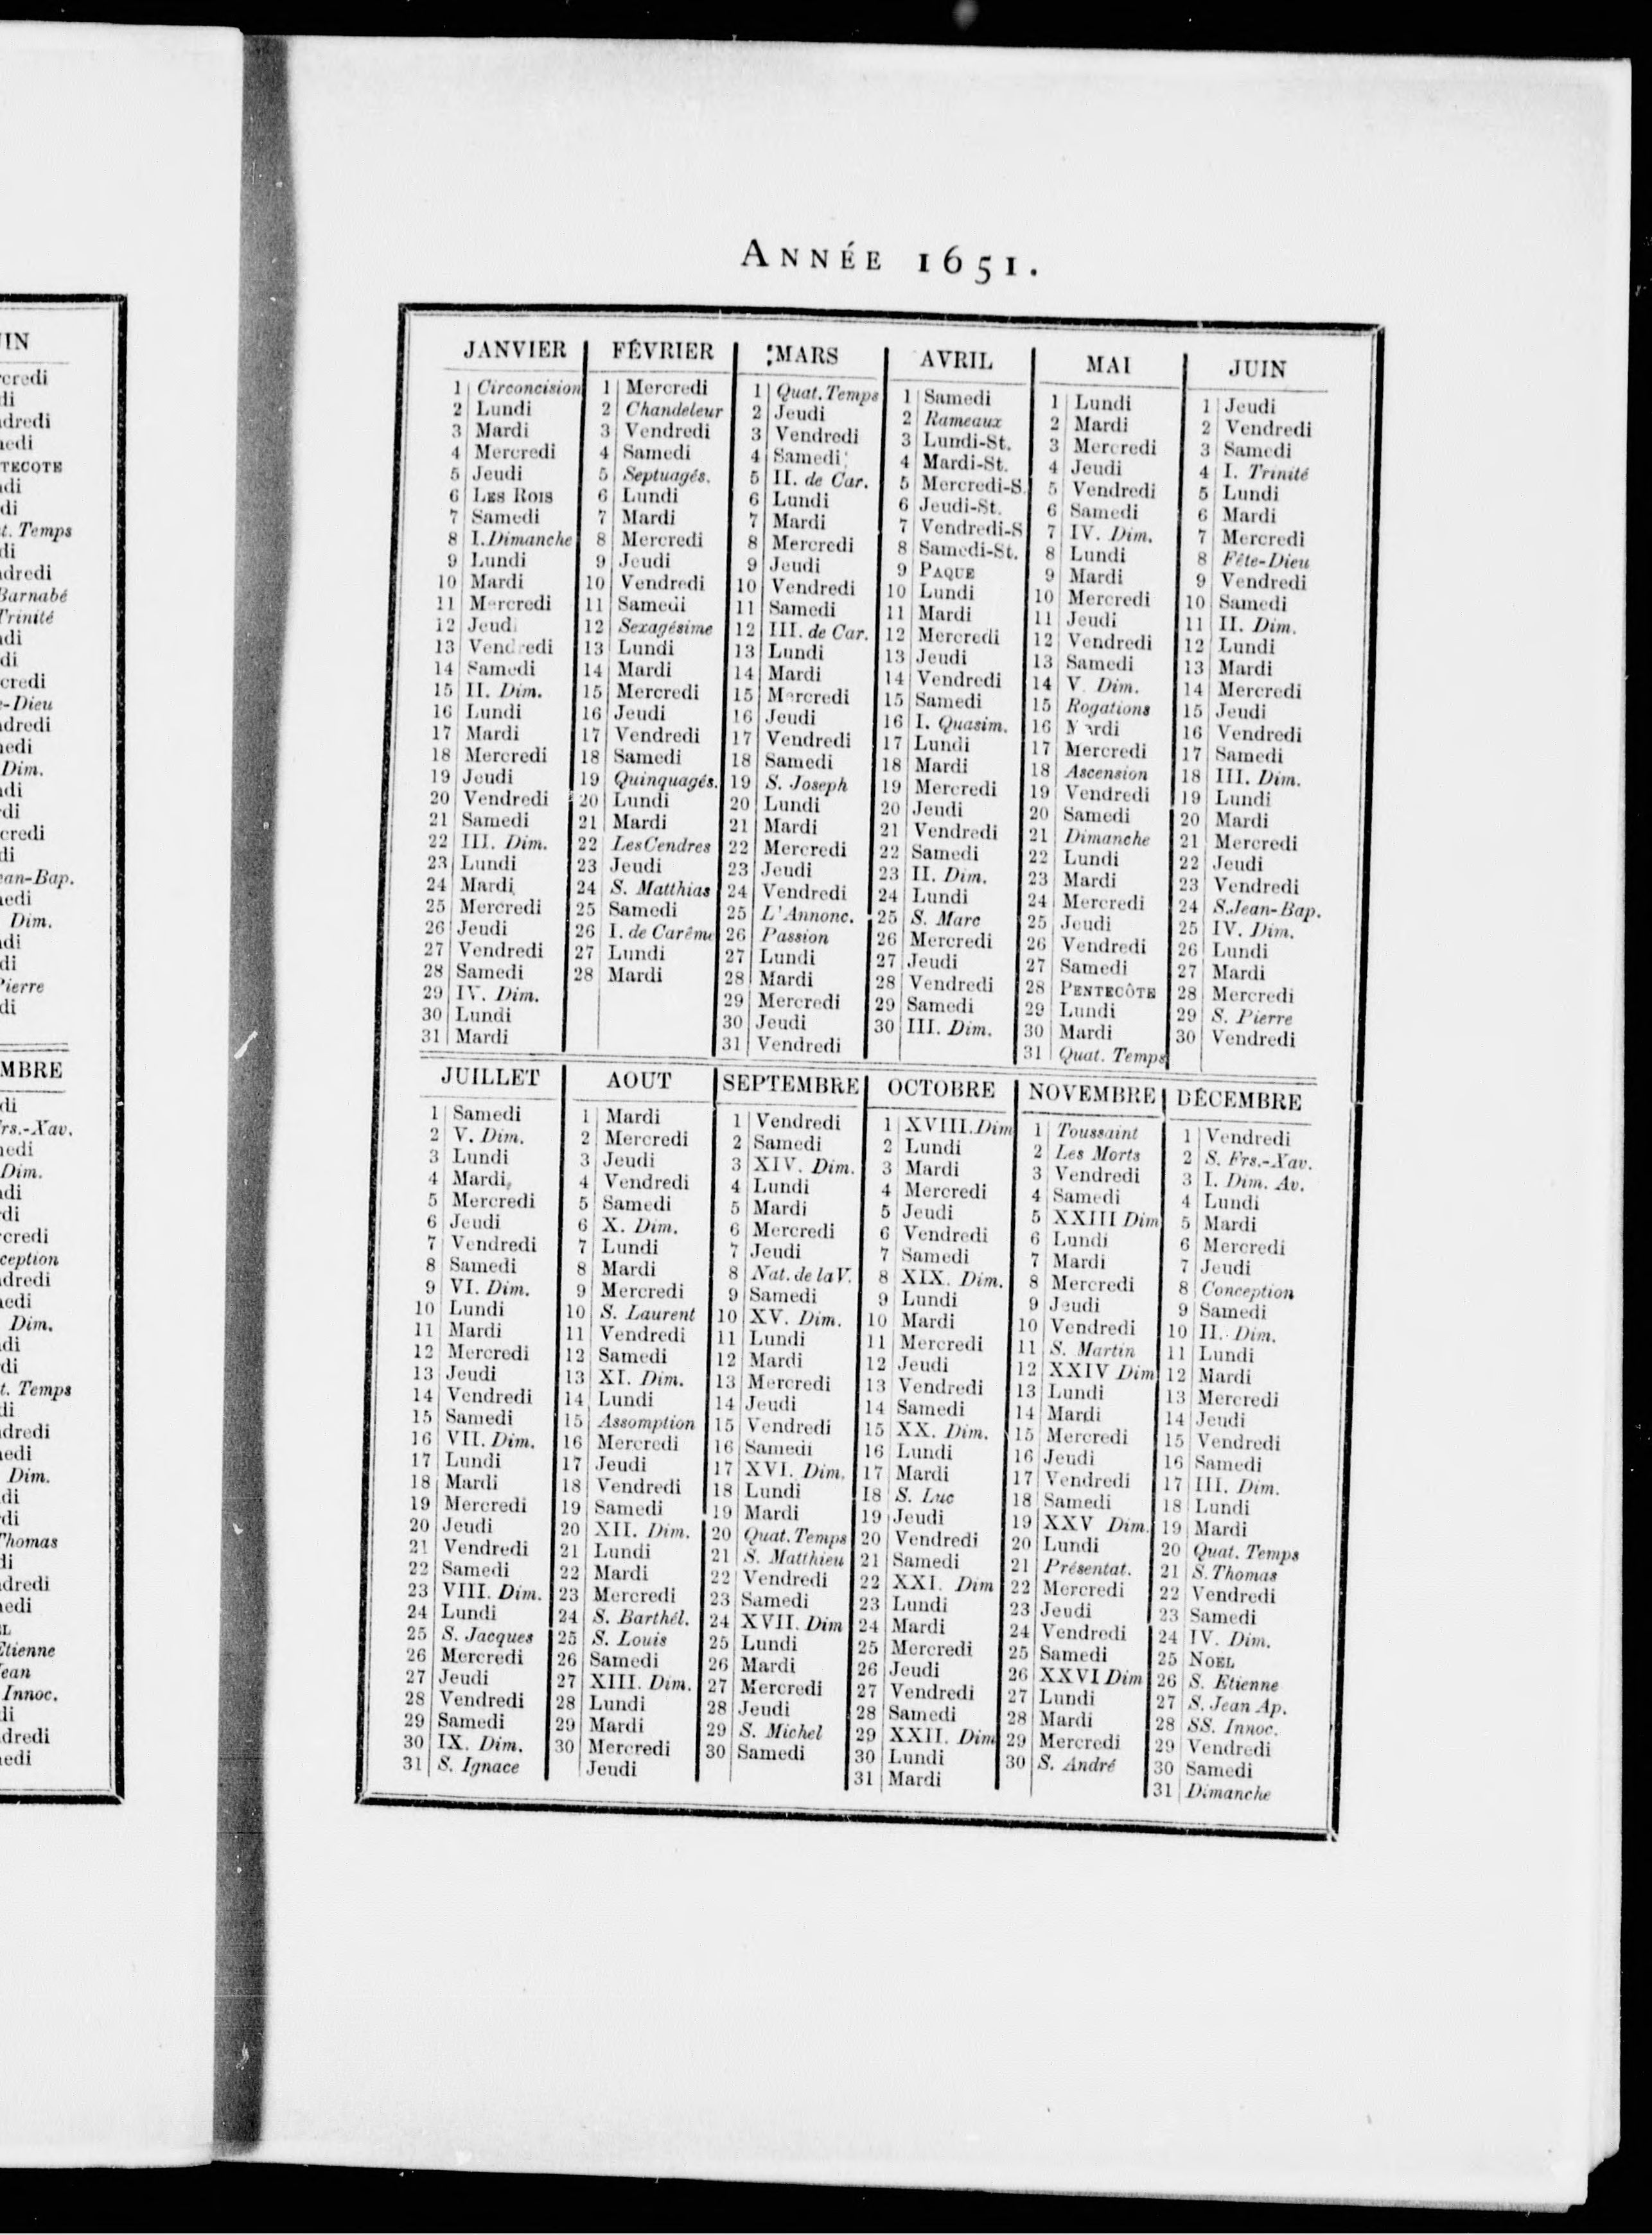 ANNÉE 1651.
JANVIER
1 Circoncision
2 Lundi
3 Mardi
4 Mercredi
5 Jeudi
6 LES ROIS
7 Samedi
8 I. Dimanche
9 Lundi
10 Mardi
11 Mercredi
12 Jeudi
13 Vendredi
14 Samedi
15 II. Dim.
16 Lundi
17 Mardi
18 Mercredi
19 Jeudi
20 Vendredi
21 Samedi
22 III. Dim.
23 Lundi
24 Mardi
25 Mercredi
26 Jeudi
27 Vendredi
28 Samedi
29 IV. Dim.
30 Lundi
31 Mardi
FÉVRIER
1 Mercredi
2 Chandeleur
3 Vendredi
4 Samedi
5 Septuagés.
6 Lundi
7 Mardi
8 Mercredi
9 Jeudi
10 Vendredi
11 Samedi
12 Sexagésime
13 Lundi
14 Mardi
15 Mercredi
16 Jeudi
17 Vendredi
18 Samedi
19 Quinquagés.
20 Lundi
21 Mardi
22 Les Cendres
23 Jeudi
24 S. Matthias
25 Samedi
26 I. de Carême
27 Lundi
28 Mardi
MARS
1 Quat. Temps
2 Jeudi
3 Vendredi
4 Samedi
5 II. de Car.
6 Lundi
7 Mardi
8 Mercredi
9 Jeudi
10 Vendredi
11 Samedi
12 III. de Car.
13 Lundi
14 Mardi
15 Mercredi
16 Jeudi
17 Vendredi
18 Samedi
19 S. Joseph
20 Lundi
21 Mardi
22 Mercredi
23 Jeudi
24 Vendredi
25 L'Annonc.
26 Passion
27 Lundi
28 Mardi
29 Mercredi
30 Jeudi
31 Vendredi
AVRIL
1 Samedi
2 Rameaux
3 Lundi-St.
4 Mardi-St.
5 Mercredi-S.
6 Jeudi-St.
7 Vendredi-S
8 Samedi-St.
9 PAQUE
10 Lundi
11 Mardi
12 Mercredi
13 Jeudi
14 Vendredi
15 Samedi
16 I. Quasim.
17 Lundi
18 Mardi
19 Mercredi
20 Jeudi
21 Vendredi
22 Samedi
23 II. Dim.
24 Lundi
25 S. Marc
26 Mercredi
27 Jeudi
28 Vendredi
29 Samedi
30 III. Dim.
MAI
1 Lundi
2 Mardi
3 Mercredi
4 Jeudi
5 Vendredi
6 Samedi
7 IV. Dim.
8 Lundi
9 Mardi
10 Mercredi
11 Jeudi
12 Vendredi
13 Samedi
14 V. Dim.
15 Rogations
16 Mardi
17 Mercredi
18 Ascension
19 Vendredi
20 Samedi
21 Dimanche
22 Lundi
23 Mardi
24 Mercredi
25 Jeudi
26 Vendredi
27 Samedi
28 PENTECÔTE
29 Lundi
30 Mardi
31 Quat. Temps
JUIN
1 Jeudi
2 Vendredi
3 Samedi
4 I. Trinité
5 Lundi
6 Mardi
7 Mercredi
8 Fête-Dieu
9 Vendredi
10 Samedi
11 II. Dim.
12 Lundi
13 Mardi
14 Mercredi
15 Jeudi
16 Vendredi
17 Samedi
18 III. Dim.
19 Lundi
20 Mardi
21 Mercredi
22 Jeudi
23 Vendredi
24 S. Jean-Bap.
25 IV. Dim.
26 Lundi
27 Mardi
28 Mercredi
29 S. Pierre
30 Vendredi
JUILLET
1 Samedi
2 V. Dim.
3 Lundi
4 Mardi
5 Mercredi
6 Jeudi
7 Vendredi
8 Samedi
9 VI. Dim.
10 Lundi
11 Mardi
12 Mercredi
13 Jeudi
14 Vendredi
15 Samedi
16 VII. Dim.
17 Lundi
18 Mardi
19 Mercredi
20 Jeudi
21 Vendredi
22 Samedi
23 VIII. Dim.
24 Lundi
25 S. Jacques
26 Mercredi
27 Jeudi
28 Vendredi
29 Samedi
30 IX. Dim.
31 S. Ignace
AOUT
1 Mardi
2 Mercredi
3 Jeudi
4 Vendredi
5 Samedi
6 X. Dim.
7 Lundi
8 Mardi
9 Mercredi
10 S. Laurent
11 Vendredi
12 Samedi
13 XI. Dim.
14 Lundi
15 Assomption
16 Mercredi
17 Jeudi
18 Vendredi
19 Samedi
20 XII. Dim.
21 Lundi
22 Mardi
23 Mercredi
24 S. Barthél.
25 S. Louis
26 Samedi
27 XIII. Dim.
28 Lundi
29 Mardi
30 Mercredi
Jeudi
SEPTEMBRE
1 Vendredi
2 Samedi
3 XIV. Dim.
4 Lundi
5 Mardi
6 Mercredi
7 Jeudi
8 Nat. de la V.
9 Samedi
10 XV. Dim.
11 Lundi
12 Mardi
13 Mercredi
14 Jeudi
15 Vendredi
16 Samedi
17 XVI. Dim.
18 Lundi
19 Mardi
20 Quat. Temps
21 S. Matthieu
22 Vendredi
23 Samedi
24 XVII. Dim
25 Lundi
26 Mardi
27 Mercredi
28 Jeudi
29 S. Michel
30 Samedi
OCTOBRE
1 XVIII. Dim
2 Lundi
3 Mardi
4 Mercredi
5 Jeudi
6 Vendredi
7 Samedi
8 XIX. Dim.
9 Lundi
10 Mardi
11 Mercredi
12 Jeudi
13 Vendredi
14 Samedi
15 XX. Dim.
16 Lundi
17 Mardi
18 S. Luc
19 Jeudi
20 Vendredi
21 Samedi
22 XXI. Dim
23 Lundi
24 Mardi
25 Mercredi
26 Jeudi
27 Vendredi
28 Samedi
29 XXII. Dim
30 Lundi
31 Mardi
NOVEMBRE
1 Toussaint
2 Les Morts
3 Vendredi
4 Samedi
5 XXIII Dim
6 Lundi
7 Mardi
8 Mercredi
9 Jeudi
10 Vendredi
11 S. Martin
12 XXIV Dim
13 Lundi
14 Mardi
15 Mercredi
16 Jeudi
17 Vendredi
18 Samedi
19 XXV Dim.
20 Lundi
21 Présentat.
22 Mercredi
23 Jeudi
24 Vendredi
25 Samedi
26 XXVI Dim
27 Lundi
28 Mardi
29 Mercredi
30 S. André
DÉCEMBRE
1 Vendredi
2 S. Frs.-Xav.
3 I. Dim. Av.
4 Lundi
5 Mardi
6 Mercredi
7 Jeudi
8 Conception
9 Samedi
10 II. Dim.
11 Lundi
12 Mardi
13 Mercredi
14 Jeudi
15 Vendredi
16 Samedi
17 III. Dim.
18 Lundi
19 Mardi
20 Quat. Temps
21 S. Thomas
22 Vendredi
23 Samedi
24 IV. Dim.
25 NOEL
26 S. Etienne
27 S. Jean Ap.
28 SS. Innoc.
29 Vendredi
30 Samedi
31 Dimanche